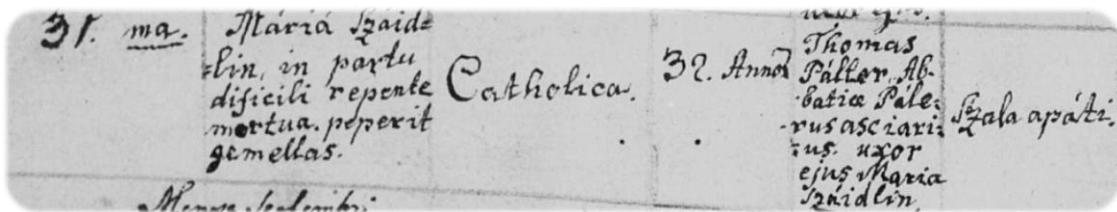 31. ma.
Mária Száid=
=lin, in partu
dificili repente
mortua. peperit
gemellas.
Catholica.
32. Annor̃
Thomas
Páller, Ab=
batiæ Pále=
rus asciari=
=us. uxor
ejus Maria
Száidlin,
Szala apáti.
Mense Septembri